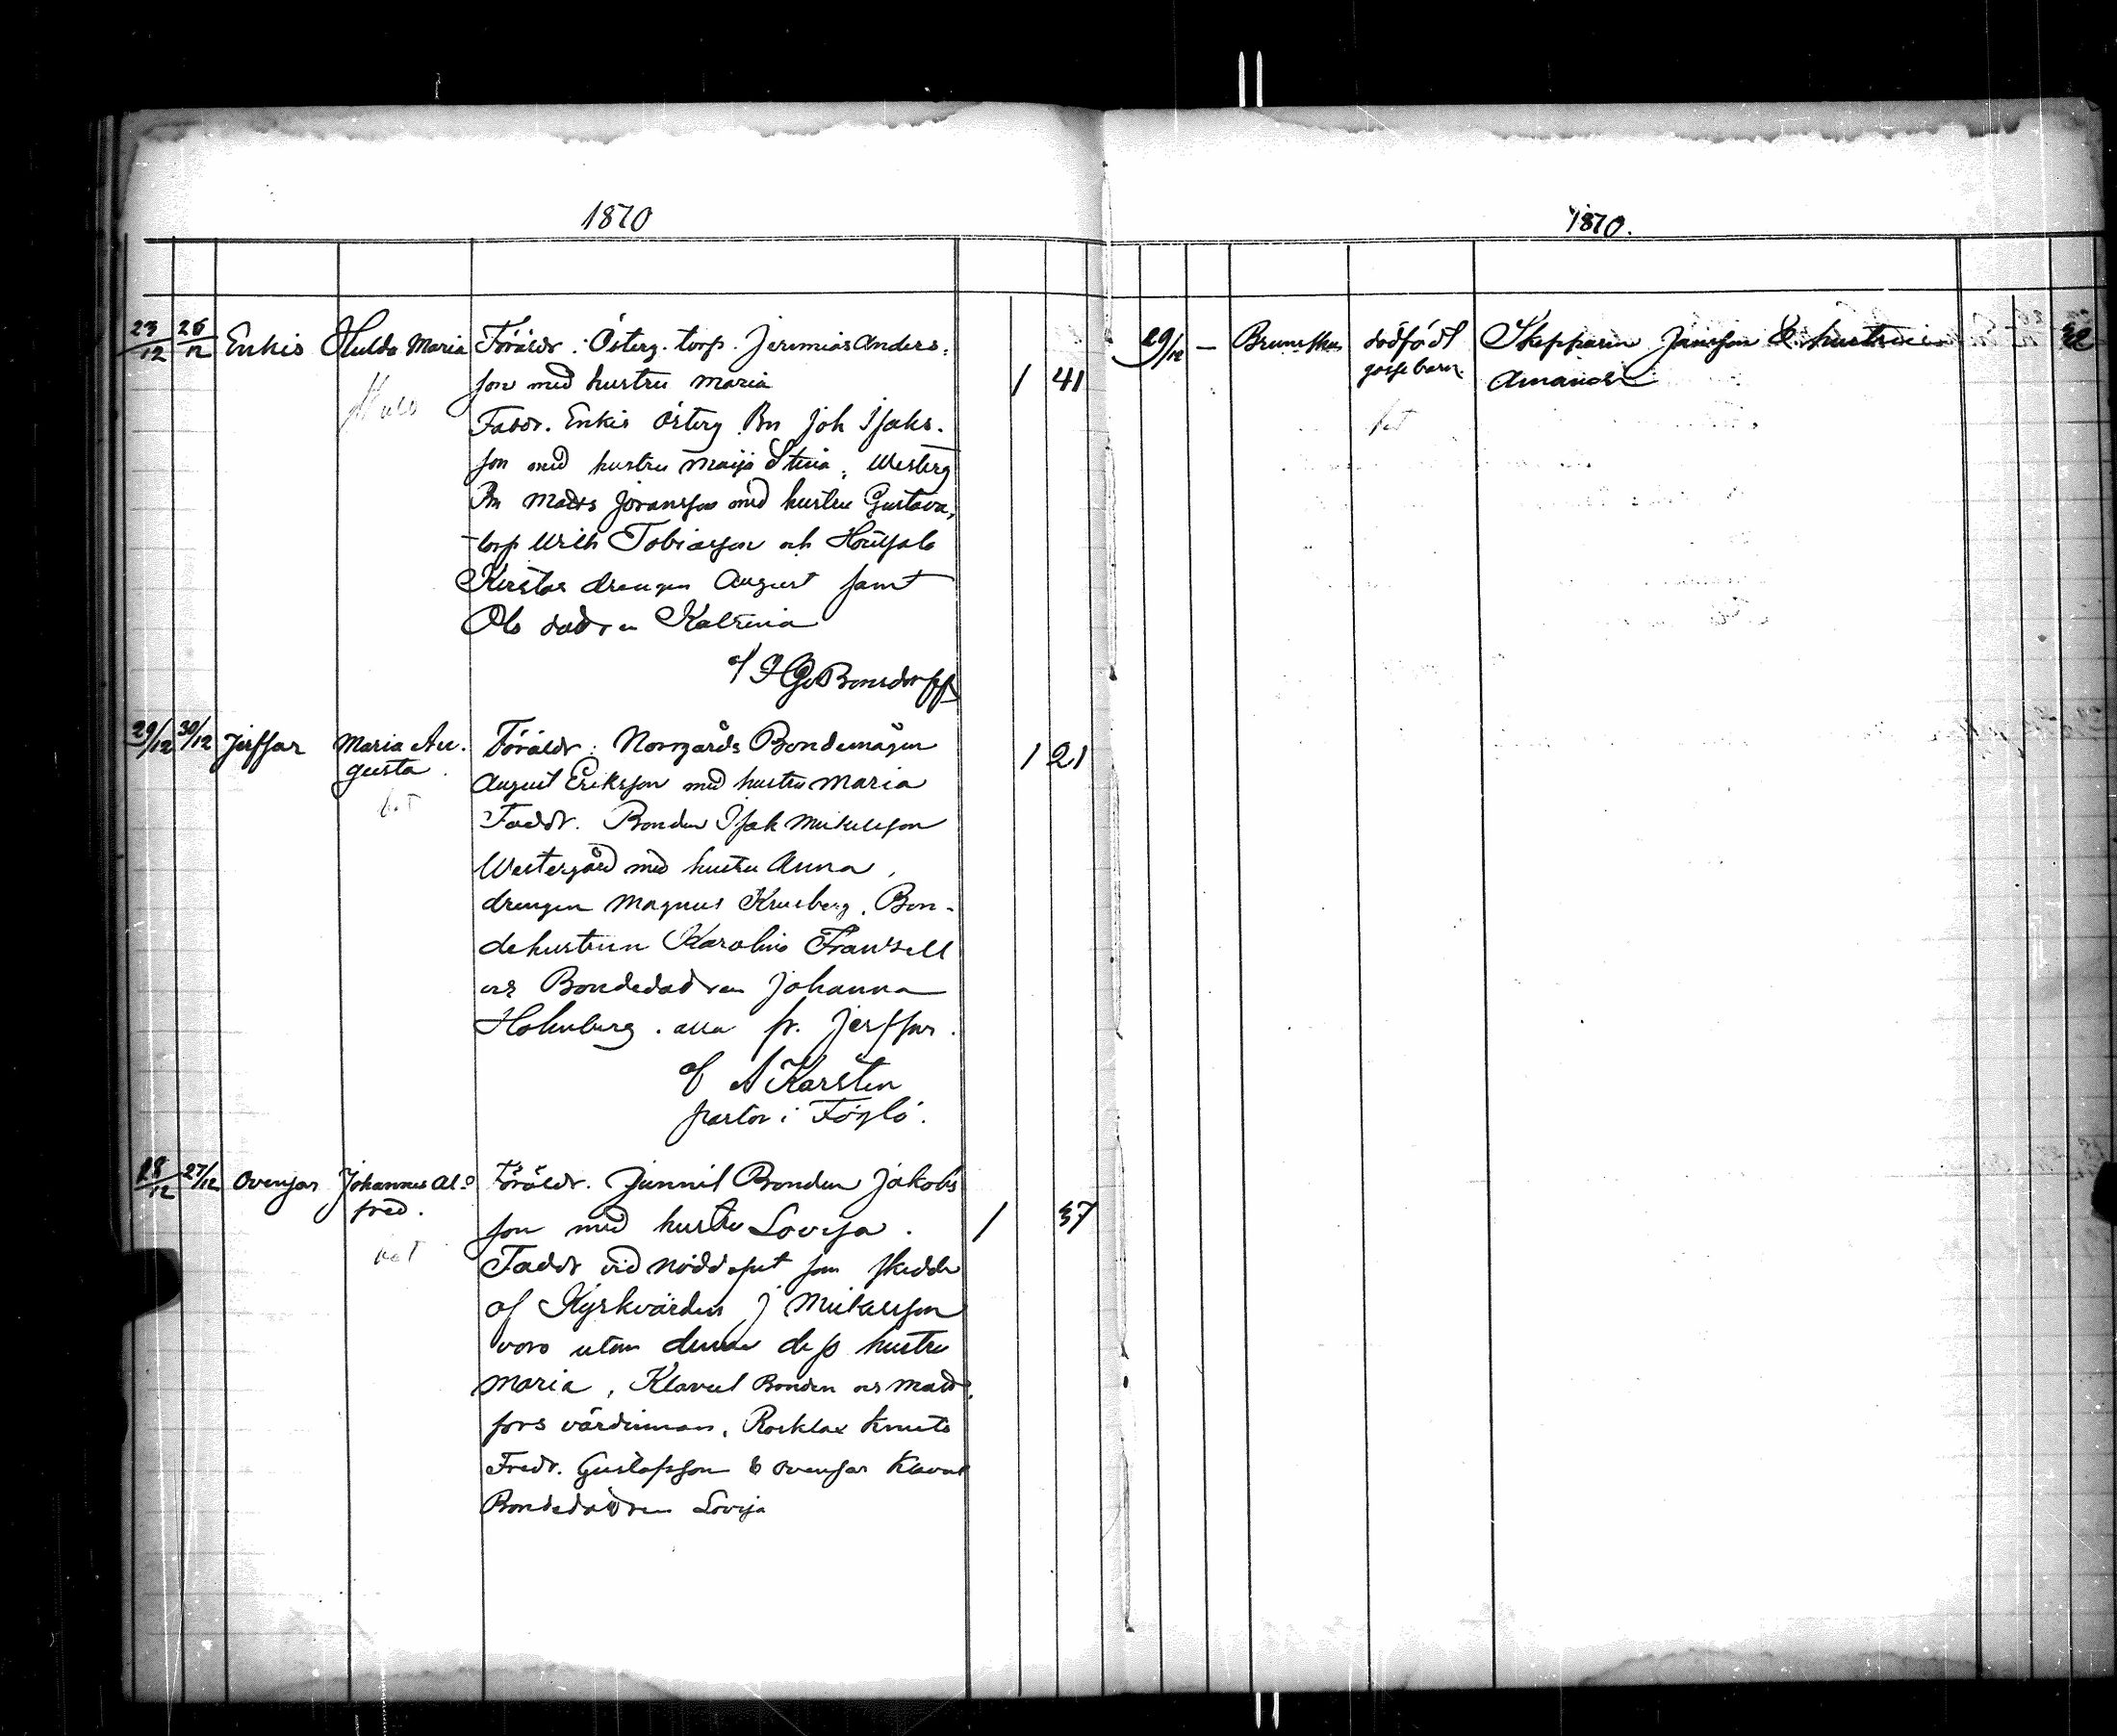 1870
23/12 26/12 Enkis Hulda Maria Föräldr: Österg. torp. Jeremias Anders-
son med hustru Maria 1 41
Faddr. Enkis Österg Bn Joh Isaks-
son med hustru Maija Stina, Westerg
Bn Matts Jöransson med hustru Gustava,
torp Ulrik Tobiasson och
drengen August samt
dottren Katrina
af Bonsdorff
29/12 30/12 Jerssar Maria Au-
gusta Föräldr: Norrgårds Bondemågen
August Eriksson med hustru Maria 1 21
Faddr. Bonden Isak Mickelsson
Westergård med hustru Anna,
drengen Magnus Kruberg, Bon-
dehustrun Karolina Franzell
och Bondedottren Johanna
Holmberg. alla fr. Jerssar.
af A Karsten
pastor i Föglö.
18/12 27/12 Ovensor Johannes Al-
fred. Föräldr. Bonden Jakobs
son med hustru Lovisa. 1 37
Faddr vid nöddopet som skedde
af Kyrkvärden J Mickelsson
voro utom denne dess hustru
Maria, Klavus Bonden
värdinnan, Rorklax Knuts
Fredr. Gustafsson & Ovensor Klavus
Bondedottren Lovisa
1870.
29/12 – Brunskär dödfödt
gossebarn Skepparen Jansson & hustrun 32
Amanda